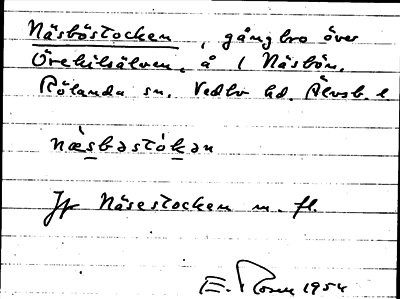 Näsböstocken, gångbro över
Örekilsälven, å / Näsbön,
Rölanda sn. Vedbo hd. Älvsb. l.
næ̀sbəstò́kən
Jfr Näsestocken m. fl.
E. Rosen 1954